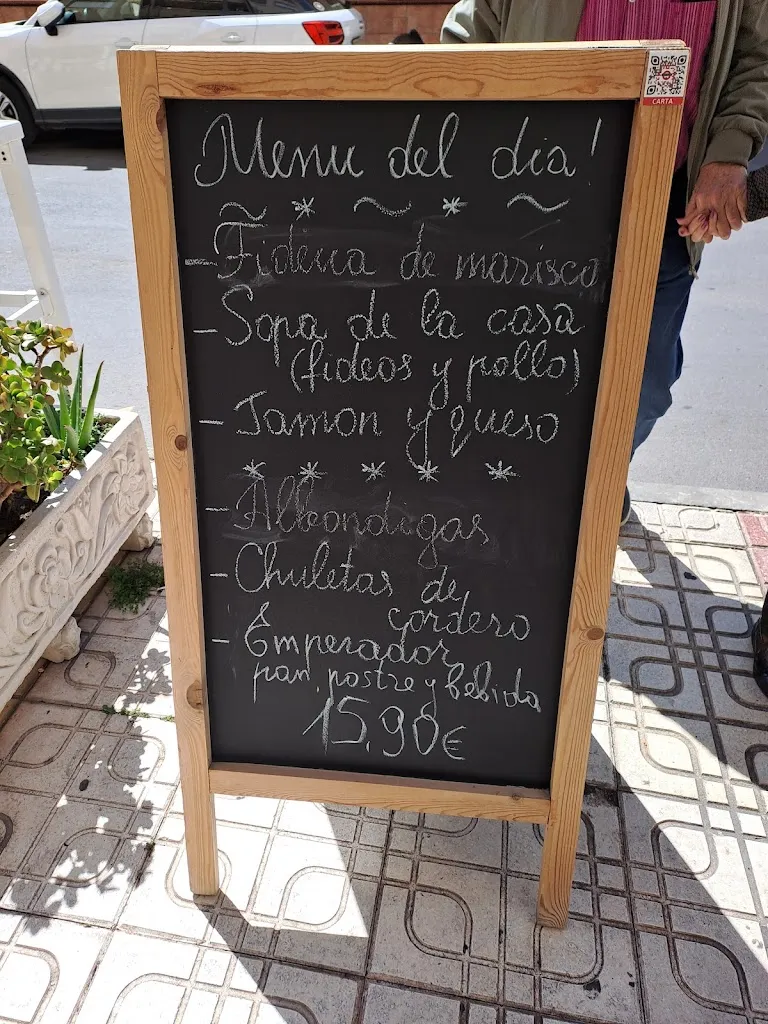 Menu del dia!
- Fideua de marisco
- Sopa de la casa
(fideos y pollo)
- Jamon y queso
- Albondigas
- Chuletas de
cordero
- Emperador
pan, postre y bebida
15,90€
CARTA